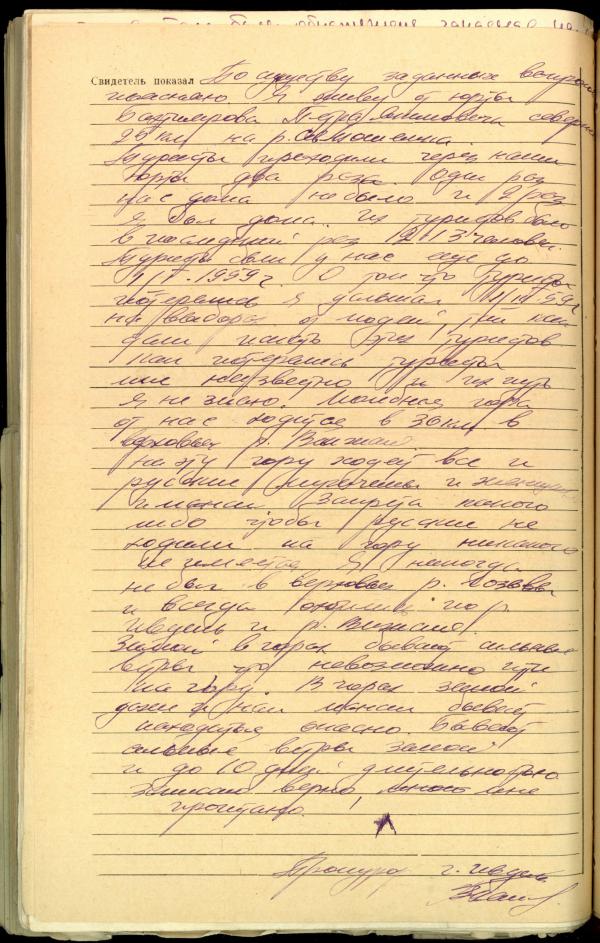 Свидетель показал По существу заданных вопросов
поясняю. Я живу от юрты
Бахтиярова Петра севернее
25 км на р.
Туристы проходили через наши
юрты два раза. Один раз
нас дома не было и 2 раз
я был дома. Их туристов было
в последний раз 12-13 человек.
Туристы были у нас еще до
1959 г. О том что туристы
потерялись я услышал 59 г
на выборах от людей,
искать этих туристов
Как потерялись туристы
мне неизвестно и их путь
я не знаю. Молебная гора
от нас в 30 км в
верховьях р. Вижай
на эту гору ходят все и
русские мужчины и женщины
и манси. Запрета какого
либо чтобы русские не
ходили на гору никакого
не имеется Я никогда
не был в верховьях р. Лозьвы
и всегда по р
Ивдель и р. Вижаю.
Зимой в горах бывают сильные
ветры что невозможно идти
на гору. В горах зимой
даже и нам манси бывает
находится опасно. Бывают
сильные ветры зимой
и до 10 дней длительностью
Записано верно, мне
прочитано.
Прокурор г. Ивдель